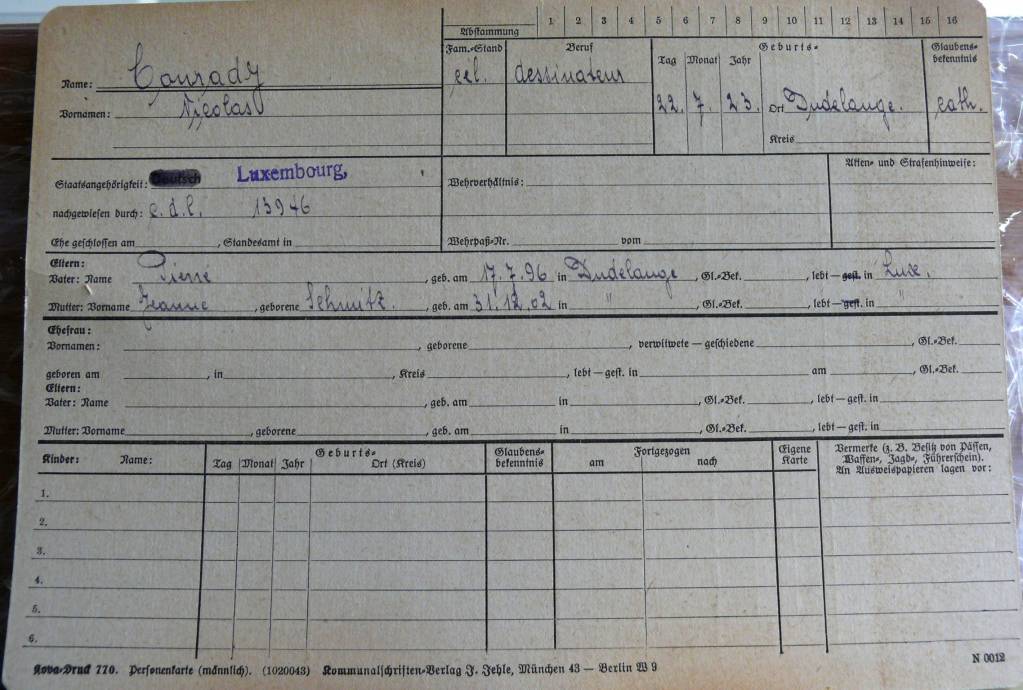 1 2 3 4 5 6 7 8 9 10 11 12 13 14 15 16
Abstammung
Name: Conrady
Vornamen: Nicolas
Fam.-Stand
cél.
Beruf
dessinateur
Geburts-
Tag Monat Jahr
22. 7. 23. Ort Dudelange.
Kreis
Glaubens-
bekenntnis
cath.
Staatsangehörigkeit: Deutsch Luxembourg,
nachgewiesen durch: c.d.l. 13946
Ehe geschlossen am , Standesamt in
Wehrverhältnis:
Wehrpaß-Nr. vom
Akten- und Strafenhinweise:
Eltern:
Vater: Name Pierre , geb. am 17.7.96 in Dudelange , Gl.-Bek. , lebt — gest. in Lux.
Mutter: Vorname Jeanne , geborene Schmitz. , geb. am 31.12.02 in " , Gl.-Bek. , lebt — gest. in "
Ehefrau:
Vornamen: , geborene , verwitwete — geschiedene , Gl.-Bek.
geboren am , in , Kreis , lebt — gest. in am , Gl.-Bek.
Eltern:
Vater: Name , geb. am in , Gl.-Bek. , lebt — gest. in
Mutter: Vorname , geborene , geb. am in , Gl.-Bek. , lebt — gest. in
Kinder: Name:
Geburts-
Tag Monat Jahr Ort (Kreis)
Glaubens-
bekenntnis
Fortgezogen
am nach
Eigene
Karte
Vermerke (z. B. Besitz von Pässen,
Waffen-, Jagd-, Führerschein).
An Ausweispapieren lagen vor:
1.
2.
3.
4.
5.
6.
Kova-Druck 770. Personenkarte (männlich). (1020043) Kommunalschriften-Verlag J. Jehle, München 43 — Berlin W 9
N 0012